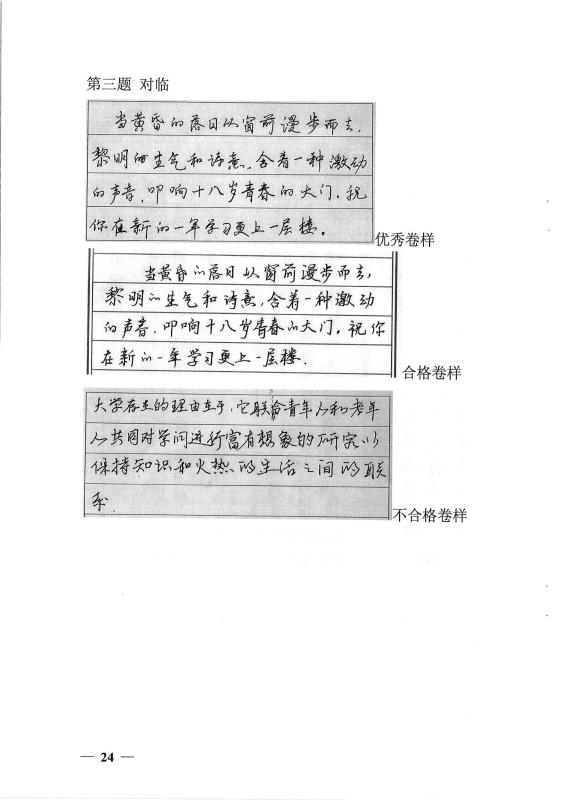 第三题 对临
当黄昏的落日从窗前漫步而去，
黎明的生气和诗意，含着一种激动
的声音，叩响十八岁青春的大门。祝
你在新的一年学习更上一层楼。
优秀卷样
当黄昏的落日从窗前漫步而去，
黎明的生气和诗意，含着一种激动
的声音，叩响十八岁青春的大门。祝你
在新的一年学习更上一层楼.
合格卷样
大学存在的理由在于，它联合青年人和老年
人共同对学问进行富有想象的研究以
保持知识和火热的生活之间的联
系.
不合格卷样
— 24 —